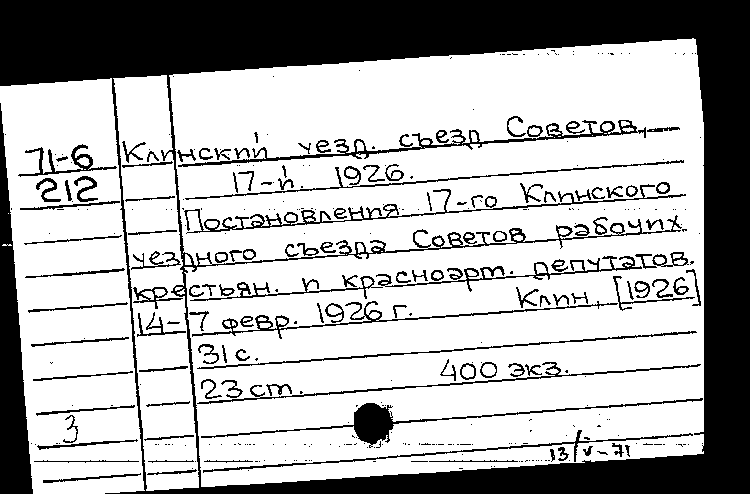 71-6 Клинский уезд. съезд Советов,
212 17-й. 1926.
Постановления 17-го Клинского
уездного съезда Советов рабочих
крестьян. и красноарм. депутатов.
14-17 февр. 1926 г. Клин, [1926]
31 с.
23 см. 400 экз.
3
13/V-71